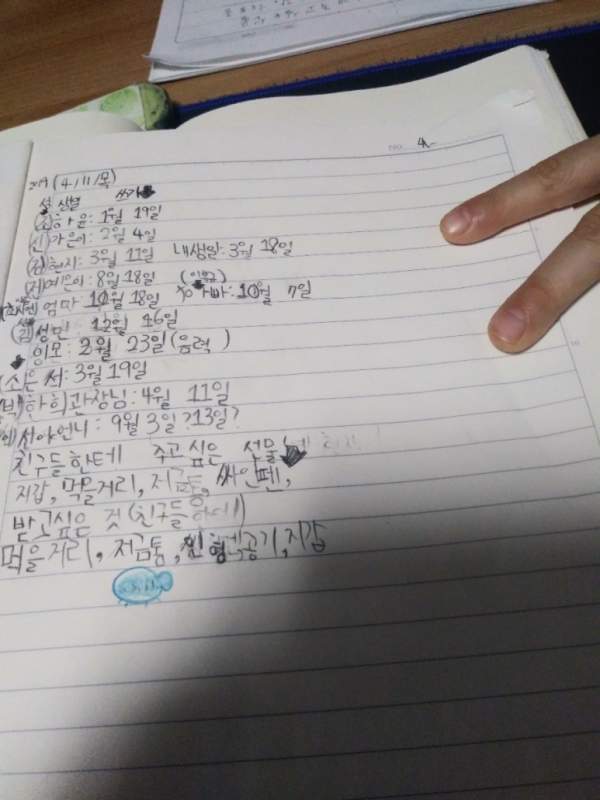 2019 (4/11/목)
생일 쓰기
(조)하윤: 1월 19일
(신)가은이: 2월 4일
(김)현지: 3월 11일 내생일: 3월 18일
(전)예은이: 8월 18일 (음력)
엄마 10월 18일 아빠: 10월 7일
(김)성민: 12월 16일
이모: 2월 23일(음력)
(소)은서: 3월 19일
(박)하희관장님: 4월 11일
서아언니: 9월 3일?13일?
친구들한테 주고싶은 선물
지갑, 먹을거리, 저금통, 싸인펜,
받고싶은 것(친구들한테)
먹을거리, 저금통, 공기, 지갑
NO.